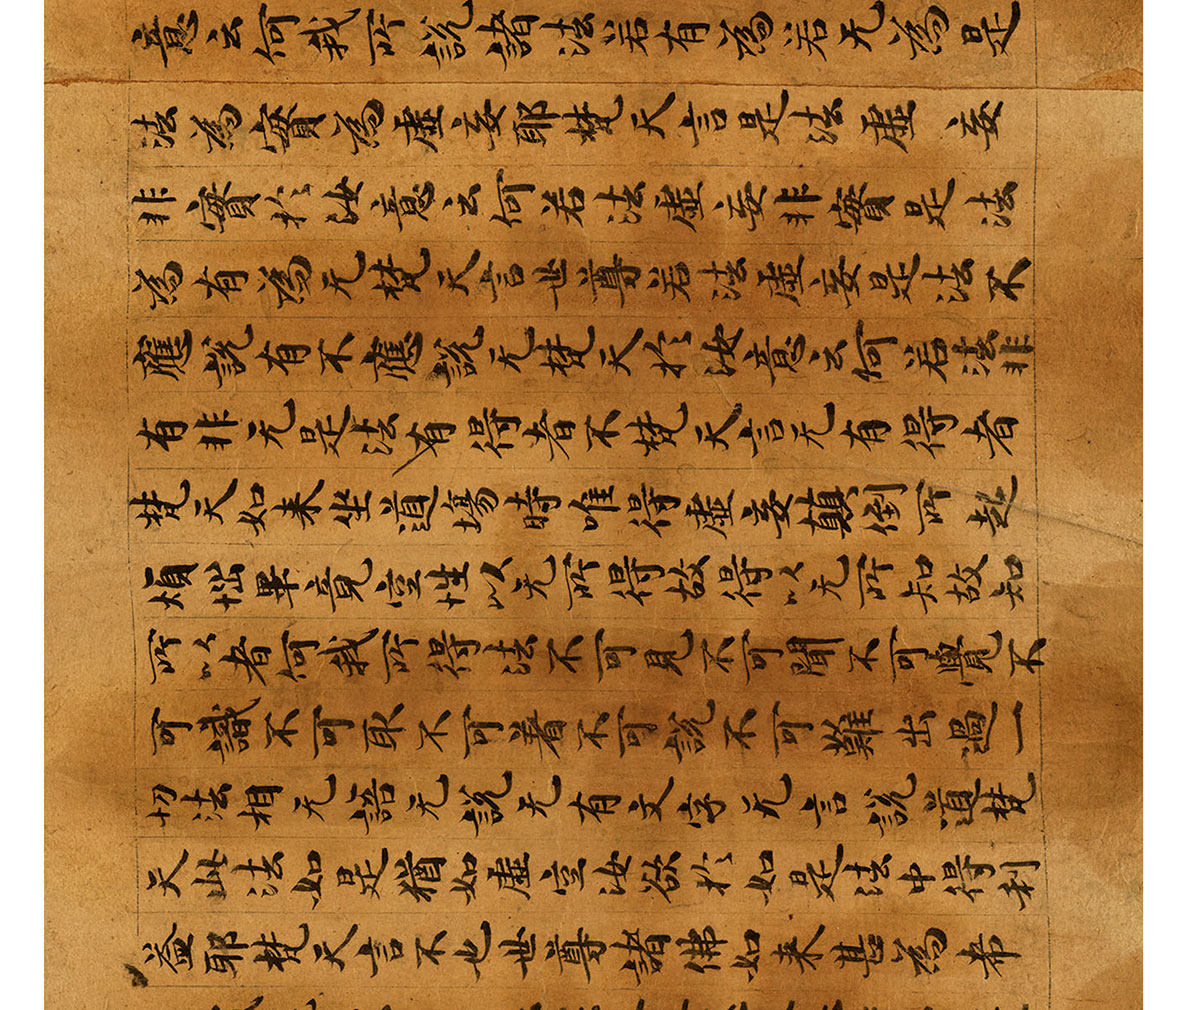 意云何我所說諸法若有為若无為是
法為實為虛妄耶梵天言是法虛妄
非實於汝意云何若法虛妄非實是法
為有為无梵天言世尊若法虛妄是法不
應說有不應說无梵天於汝意云何若法非
有非无是法有得者不梵天言无有得者
梵天如来坐道場時唯得虛妄顛倒所起
煩惱畢竟空性以无所得故得以无所知故知
所以者何我所得法不可見不可聞不可覺不
可識不可取不可著不可說不可難出過一
切法相无語无說无有文字无言說道梵
天此法如是猶如虛空汝欲於如是法中得利
益耶梵天言不也世尊諸佛如来甚為希